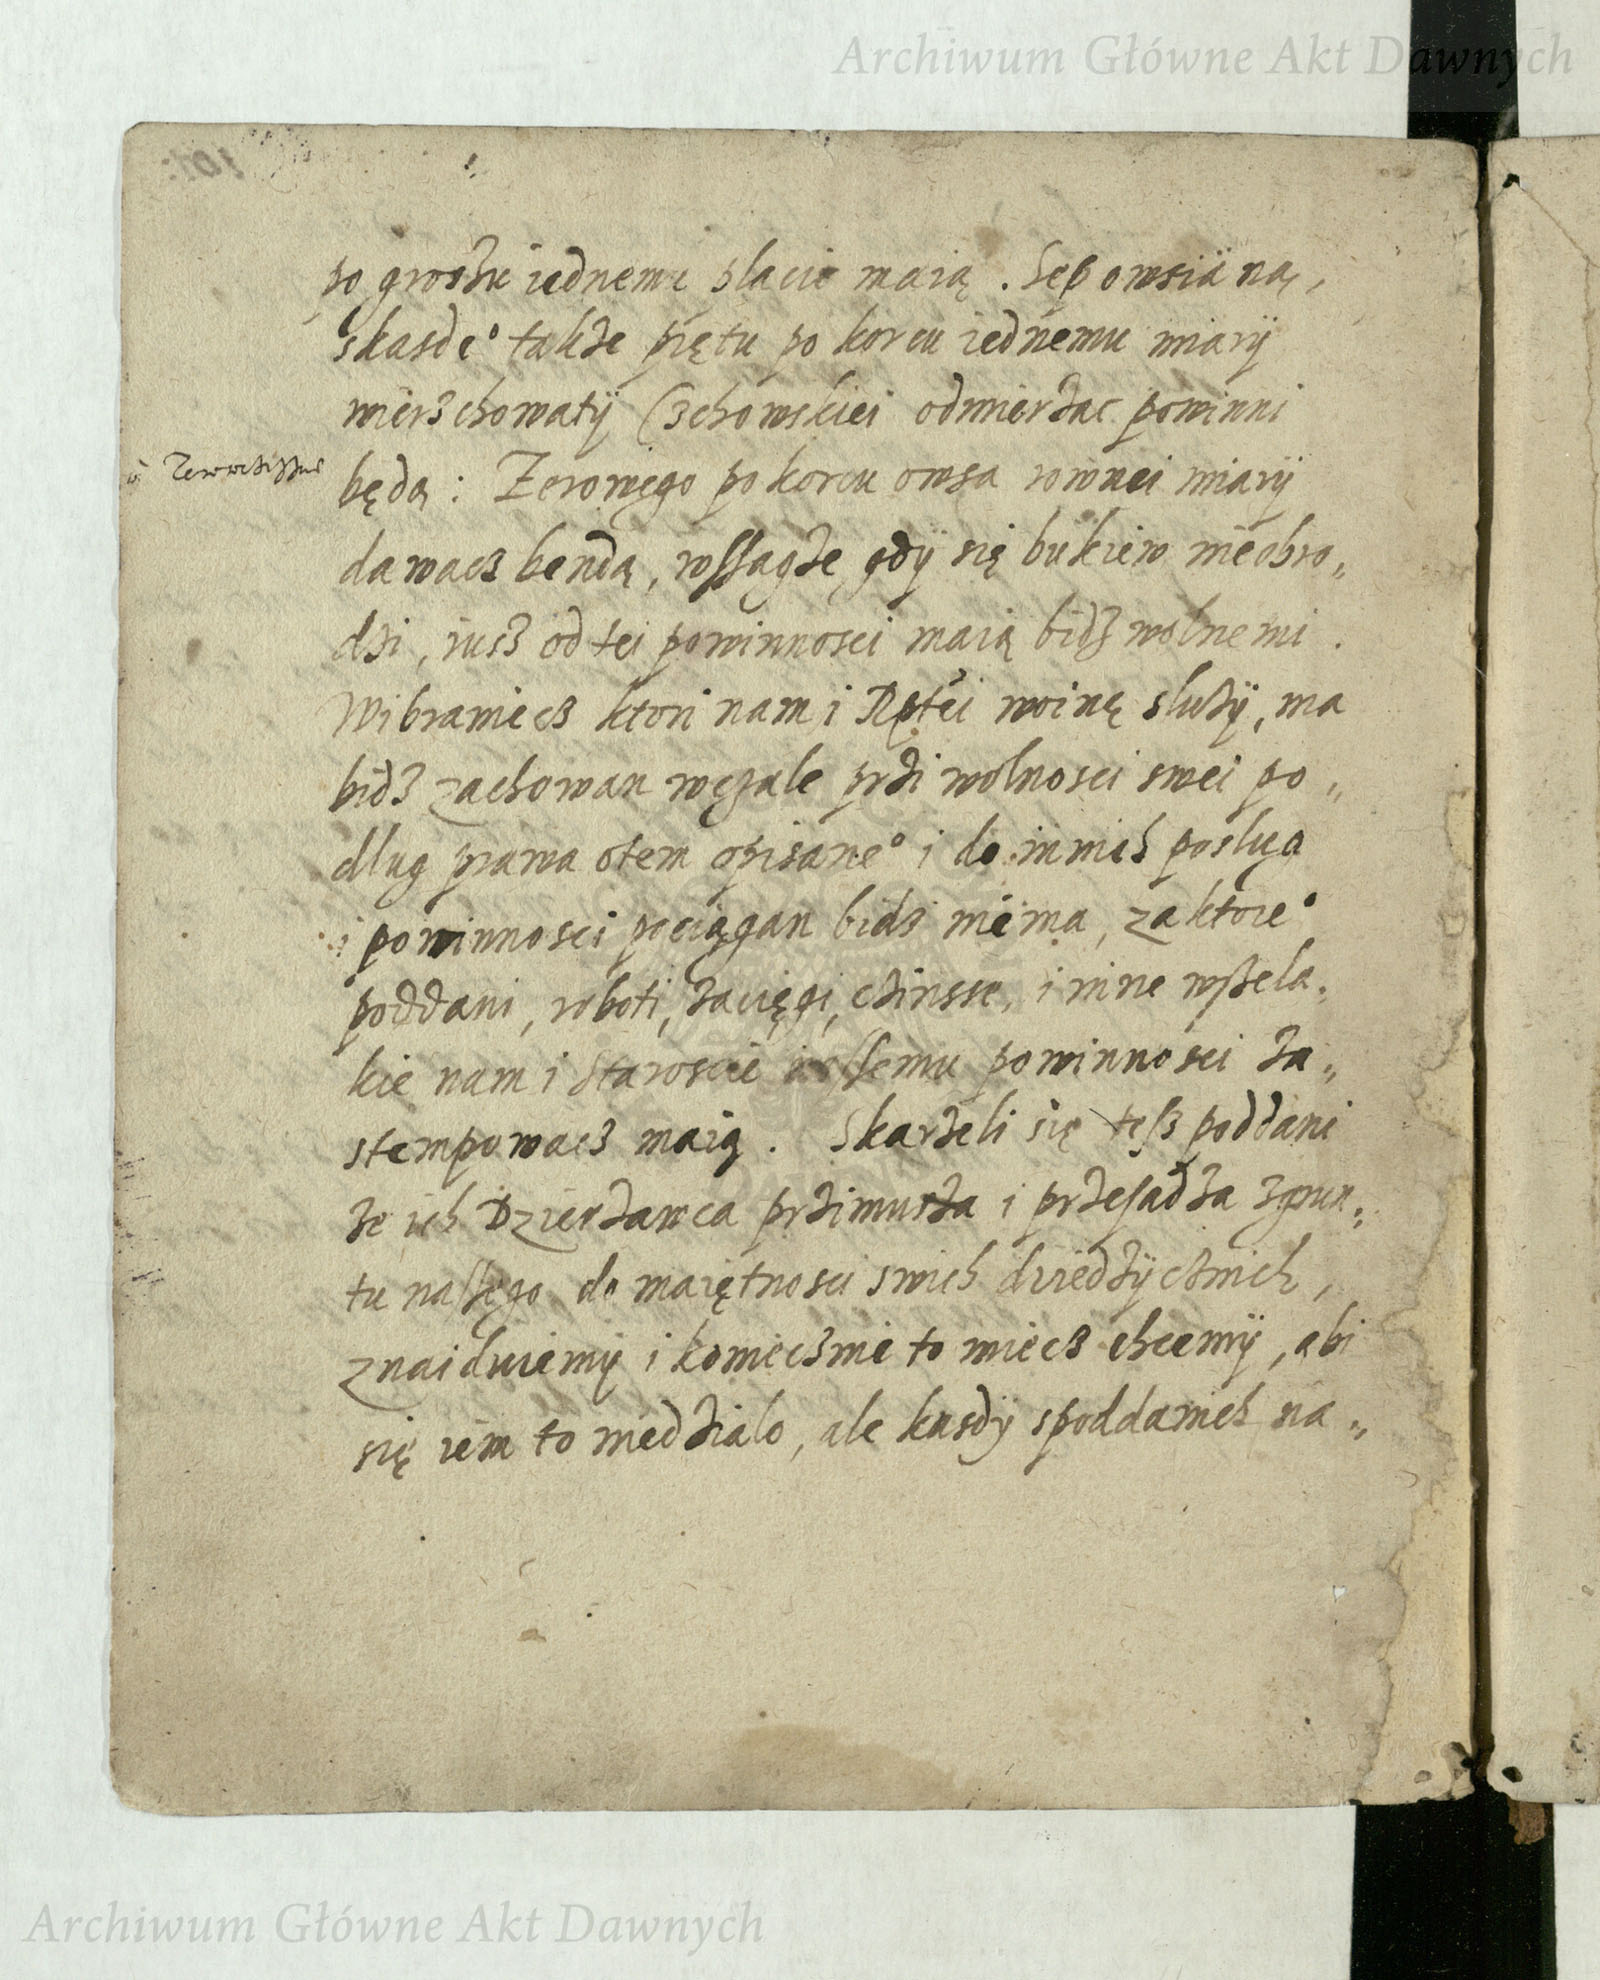 Archiwum Główne Akt Dawnych
po groszu iednemu placic maią. Sęp owsiä ną,
skasde° takze piętu po korcu iednemu miarÿ
wierzchowatÿ Czchowskiei odmierzac powinni
będą: Zerowego po korcu owsa rownei miarÿ
dawacz bendą, wssagze gdÿ się bukiew nieobro„
dzi, iusz od tei powinnosci maią bidz wolnemi.
Wibraniecz ktori nam i Rptei woinę sluzÿ, ma
bidz zachowan wcale przi wolnosci swei po„
dlug prawa otem opisane° i do innich poslug
i powinnosci pociągan bidz niema, za ktore°
poddani, roboti, zaciegi, czinsse, i inne wszela„
kie nam i Staroscie powinnosci za„
stempowacz maią. Skarzeli się tesz poddani
ze ich Dzierzawca przimusza i przesadza zgrun„
tu nassego do maiętnosci swich dziedzÿcznich,
znaiduiemÿ i koniecznie to miecz chcemÿ, abi
się iem to niedzialo, ale kasdÿ spoddanich na„
Archiwum Główne Akt Dawnych